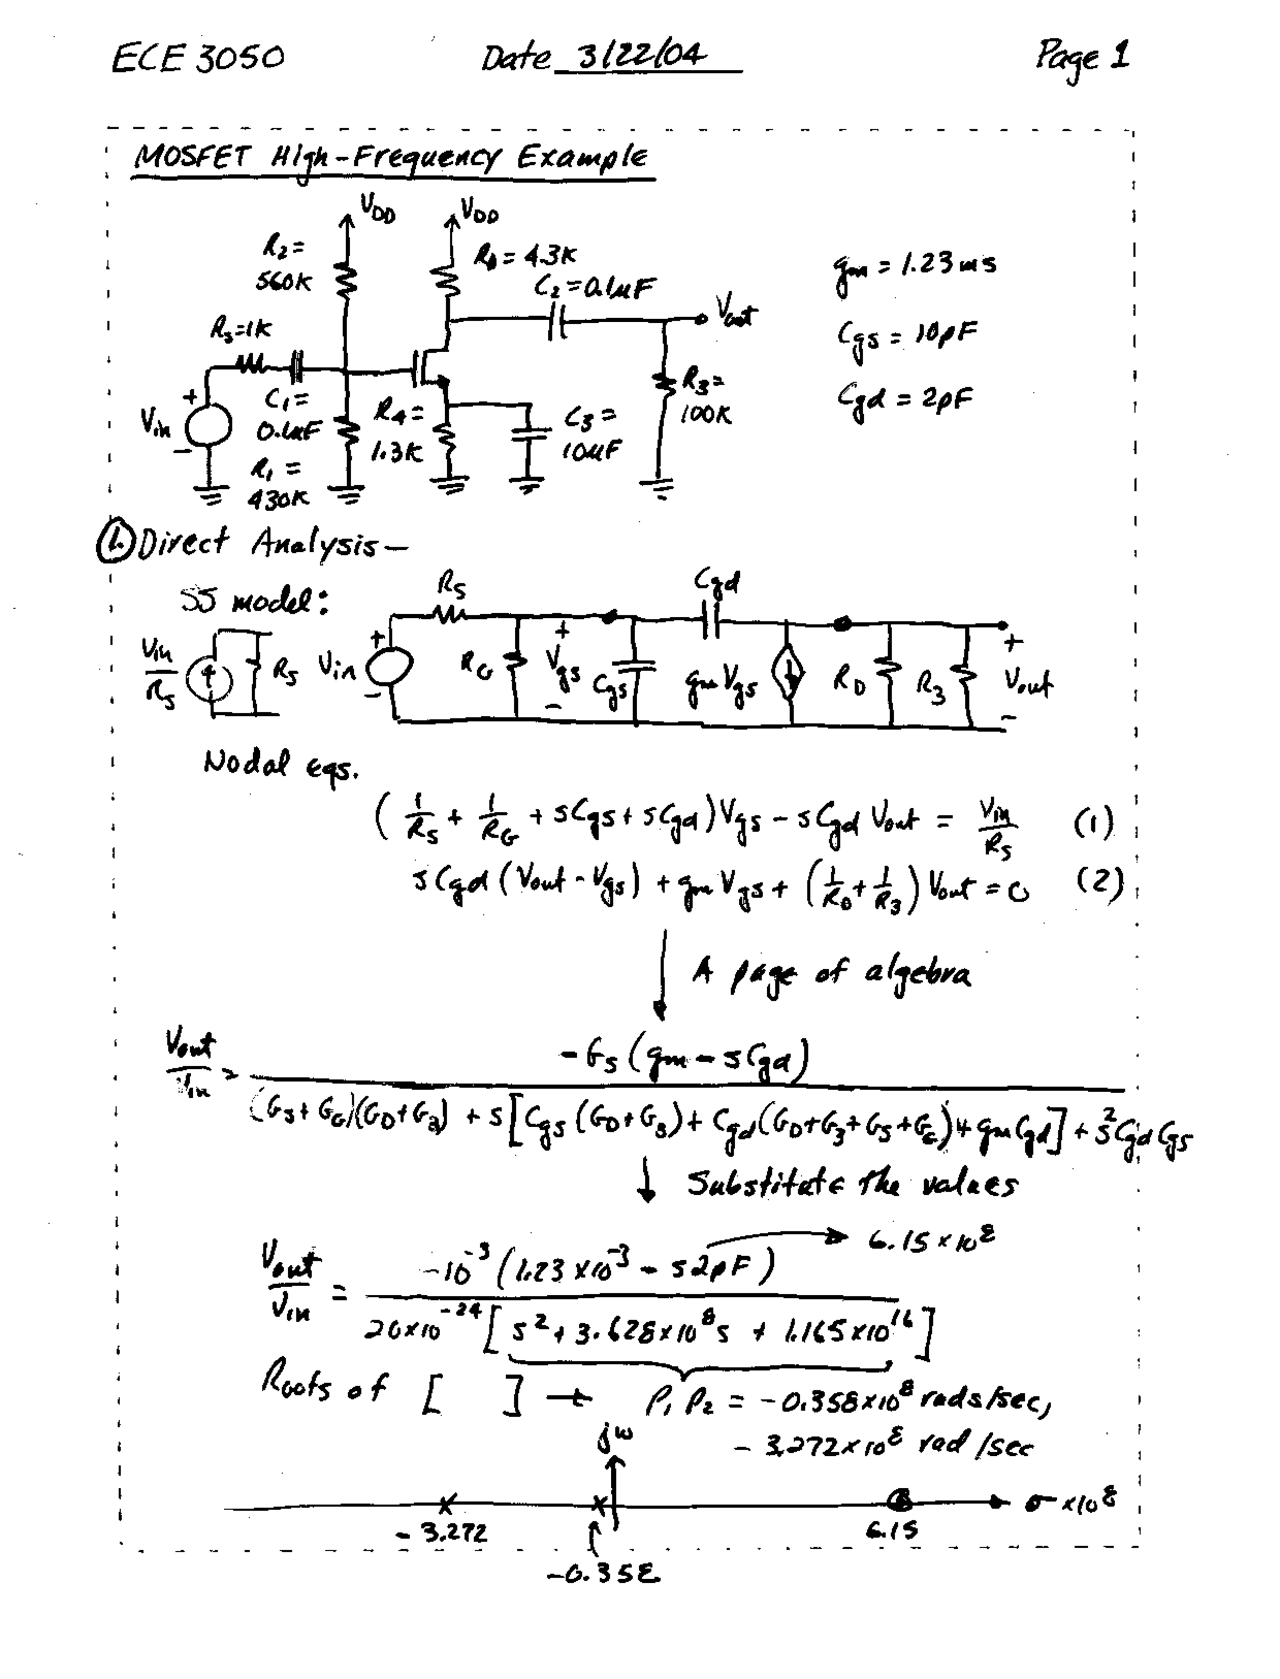 ECE 3050 Date 3/22/04 Page 1
MOSFET High-Frequency Example
VDD VDD
R2 =
560K
RD = 4.3K
C2 = 0.1uF
Vout
gm = 1.23ms
Rs=1K
Cgs = 10pF
+
Vin
-
C1 =
0.1uF
R4 =
1.3K
C3 =
10uF
R3 =
100K
Cgd = 2pF
R1 =
430K
1. Direct Analysis—
SS model:
Vin/Rs Rs Vin + - Rs RG + Vgs - Cgs Cgd gmVgs RD R3 + Vout -
Nodal eqs.
(1/Rs + 1/RG + sCgs + sCgd)Vgs - sCgd Vout = Vin/Rs (1)
sCgd(Vout - Vgs) + gmVgs + (1/RD + 1/R3) Vout = 0 (2)
↓ A page of algebra
Vout/Vin = -Gs(gm - sCgd) / (Gs + GG)(GD+G3) + s[Cgs(GD+G3) + Cgd(GD+G3+Gs+GG) + gmCgd] + s²CgdCgs
↓ Substitute the values
Vout/Vin = -10⁻³(1.23×10⁻³ - s2pF) / 20×10⁻²⁴[s² + 3.628×10⁸s + 1.165×10¹⁶] → 6.15×10⁸
Roots of [ ] → P1 P2 = -0.358×10⁸ rads/sec,
- 3.272×10⁸ rad/sec
jω
σ ×10⁸
- 3.272 6.15
-0.358